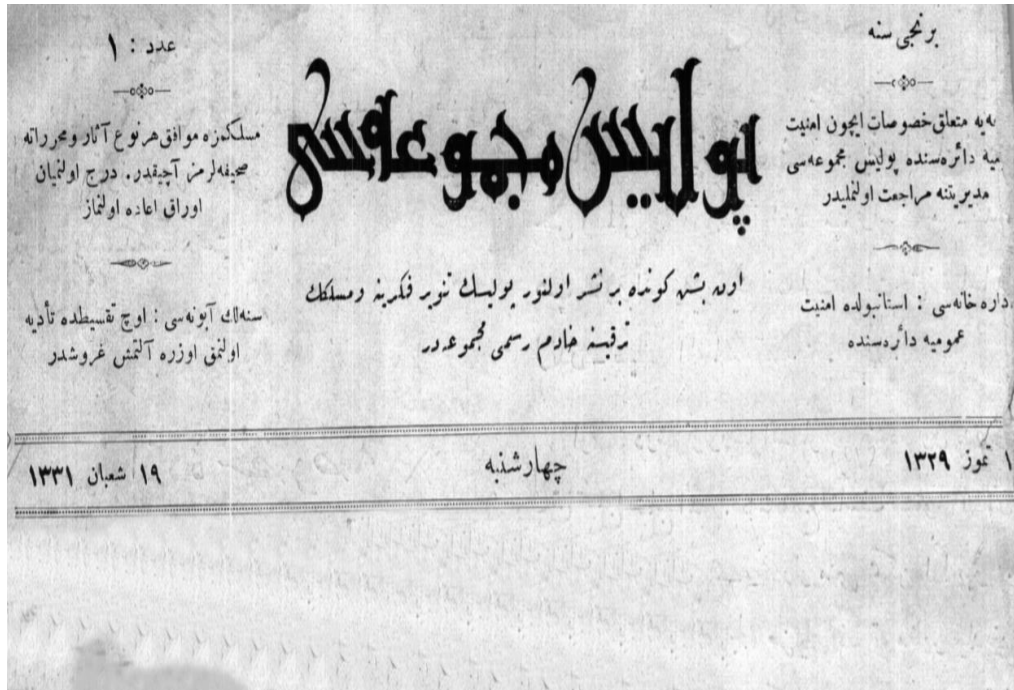 برنجی سنه
متعلق خصوصات ایچون امنیت
دائره‌سنده پولیس مجموعه‌سی
مدیریتنه مراجعت اولنملیدر
اداره خانه‌سی : استانبولده امنیت
عمومیه دائره‌سنده
پولیس مجموعه‌سی
اون بش کونده بر نشر اولنور پولیسك تنویر فکرینه ومسلكك
ترقیسنه خادم رسمی مجموعه‌در
عدد : ۱
مسلکمزه موافق هر نوع آثار ومحرراته
صحیفه‌لرمز آچیقدر. درج اولنمیان
اوراق اعاده اولنماز
سنه‌لك آبونه‌سی : اوچ تقسیطده تأدیه
اولنمق اوزره آلتمش غروشدر
تموز ۱۳۲۹
چهارشنبه
۱۹ شعبان ۱۳۳۱